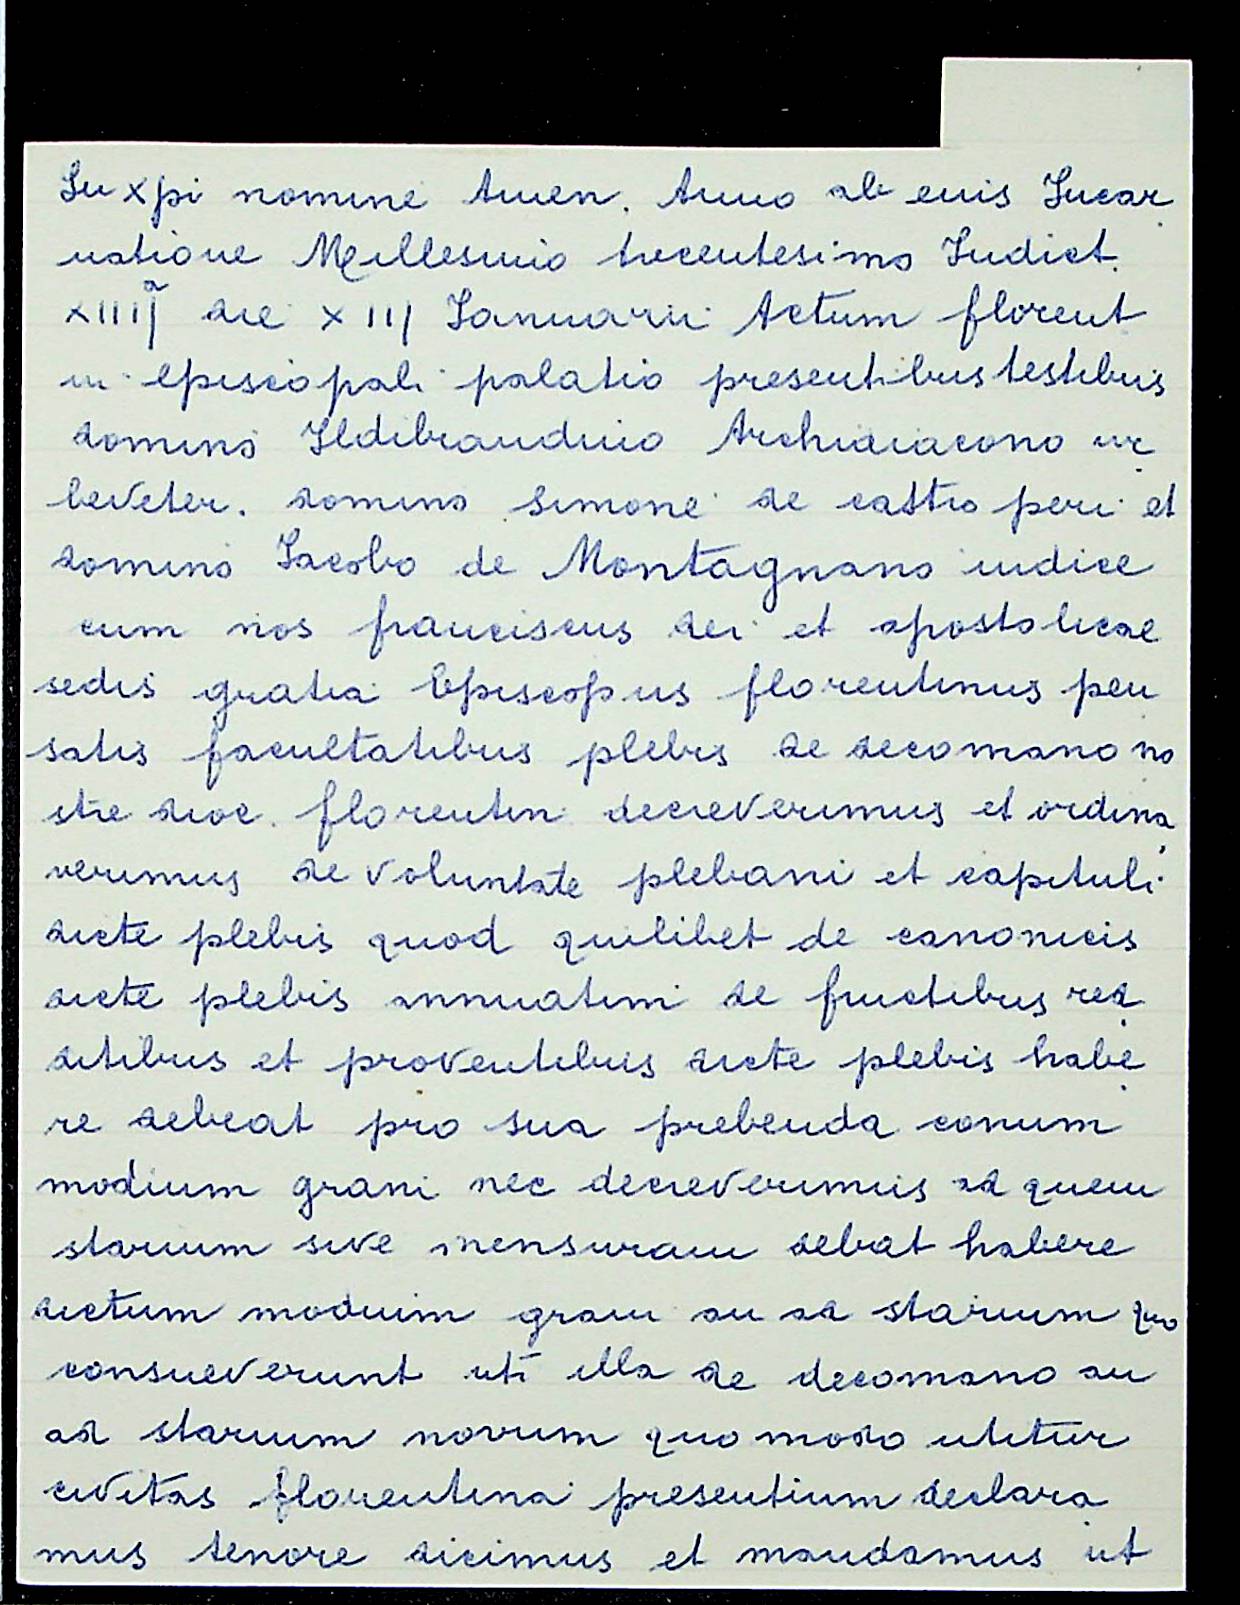 In xpi nomine Amen. Anno ab eius Incar
natione Millesimo trecentesimo Indict.
XIIIJª die XIIJ Ianuarii Actum florent
in episcopali palatio presentibus testibus
domino Ildibrandino Archidiacono ur
beveter. domino Simone de castro peri et
domino Iacobo de Montagnano iudice
cum nos franciscus dei et apostolicae
sedis gratia Episcopus florentinus pen
satis facultatibus plebis de decomano no
stre dioc. florentin decreverimus et ordina
verimus de voluntate plebani et capituli
dicte plebis quod quilibet de canonicis
dicte plebis annuatim de fructibus red
ditibus et proventibus dicte plebis habe
re debeat pro sua prebenda conum
modium grani nec decreverimus ad quem
starium sive mensuram debat habere
dictum modium grani an ad starium quo
consueverunt uti illa de decomano an
ad starium novum quo modo utitur
civitas florentina presentium declara
mus tenore dicimus et mandamus ut